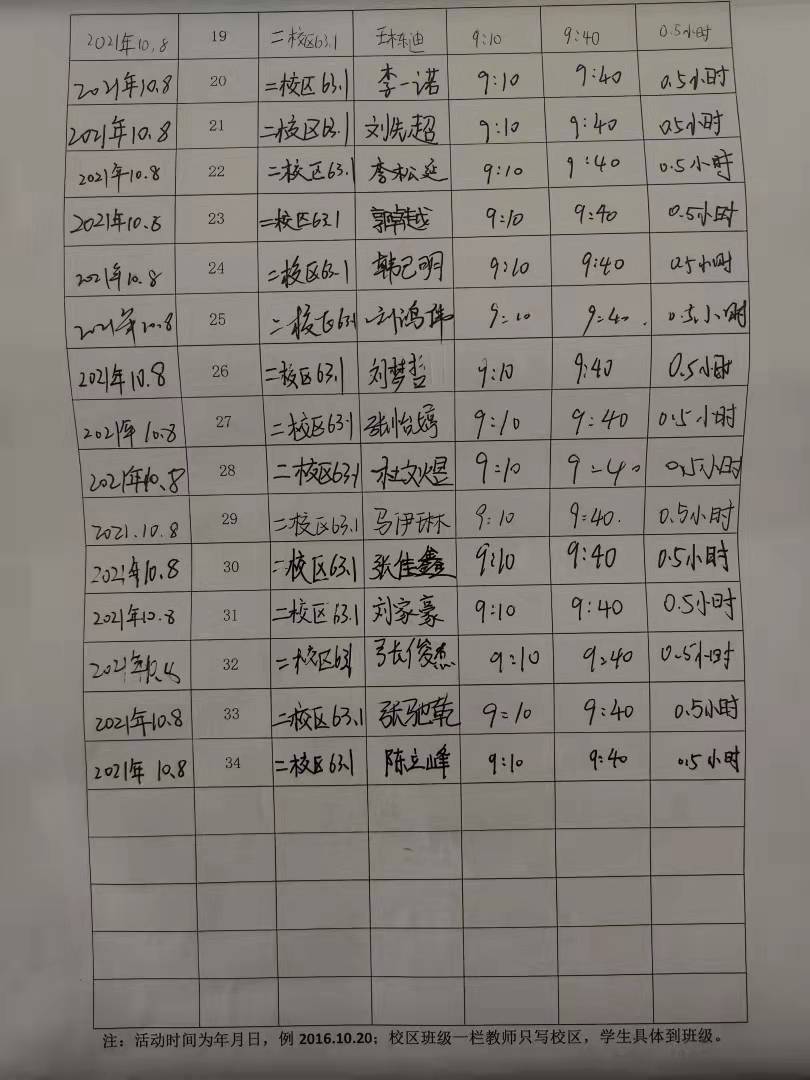 2021年10.8 19 二校区63.1 王栋迪 9:10 9:40 0.5小时
2021年10.8 20 二校区63.1 李一诺 9:10 9:40 0.5小时
2021年10.8 21 二校区63.1 刘先超 9:10 9:40 0.5小时
2021年10.8 22 二校区63.1 李松延 9:10 9:40 0.5小时
2021年10.8 23 二校区63.1 郭卓越 9:10 9:40 0.5小时
2021年10.8 24 二校区63.1 韩己明 9:10 9:40 0.5小时
2021年10.8 25 二校区63.1 刘鸿 9:10 9:40 0.5小时
2021年10.8 26 二校区63.1 刘梦哲 9:10 9:40 0.5小时
2021年10.8 27 二校区63.1 张怡婷 9:10 9:40 0.5小时
2021年10.8 28 二校区63.1 杜文煜 9:10 9:40 0.5小时
2021.10.8 29 二校区63.1 马伊琳 9:10 9:40. 0.5小时
2021年10.8 30 二校区63.1 张佳鑫 9:10 9:40 0.5小时
2021年10.8 31 二校区63.1 刘家豪 9:10 9:40 0.5小时
2021年10.8 32 二校区63.1 张俊杰 9:10 9:40 0.5小时
2021年10.8 33 二校区63.1 张驰乾 9:10 9:40 0.5小时
2021年10.8 34 二校区63.1 陈立峰 9:10 9:40 0.5小时
注：活动时间为年月日，例 2016.10.20；校区班级一栏教师只写校区，学生具体到班级。